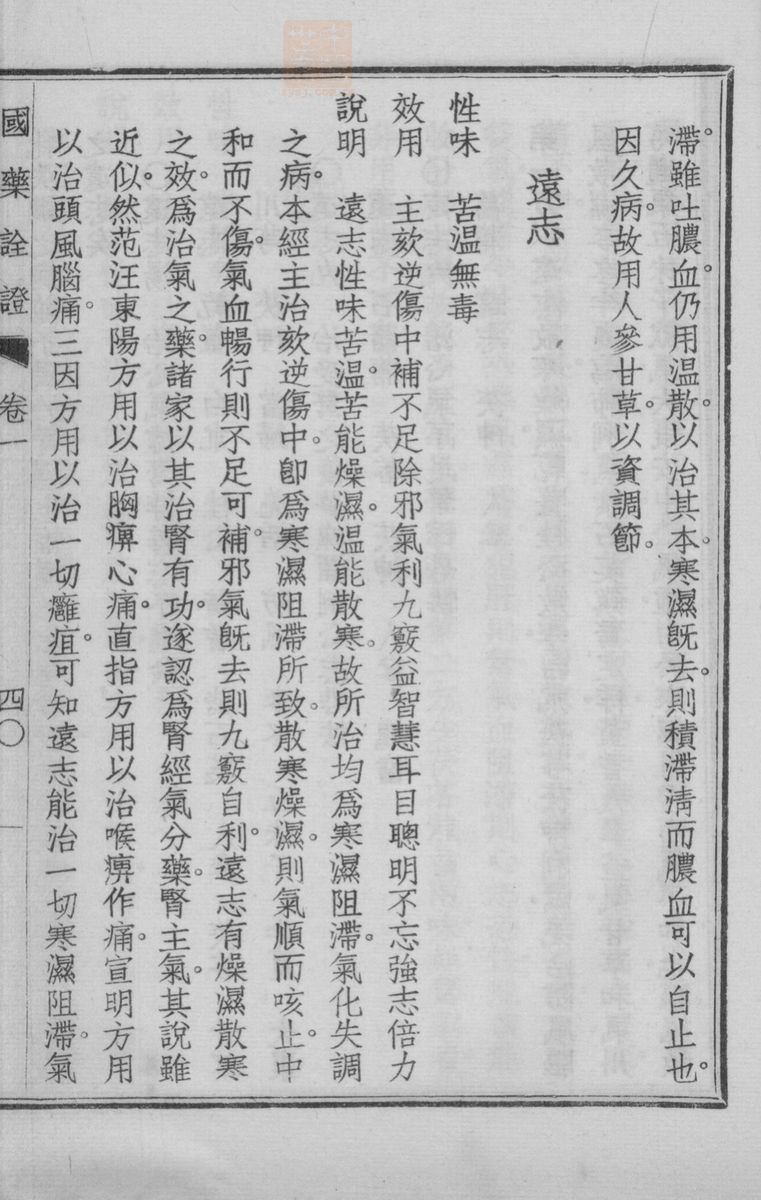 滯。雖吐膿血。仍用温散。以治其本。寒濕旣去。則積滯淸而膿血可以自止也。
因久病。故用人參甘草。以資調節。
遠志
性味　苦温無毒
效用　主欬逆傷中補不足除邪氣利九竅益智慧耳目聰明不忘強志倍力
說明　遠志性味苦温。苦能燥濕。温能散寒。故所治均爲寒濕阻滯。氣化失調
之病。本經主治欬逆傷中。卽爲寒濕阻滯所致。散寒燥濕。則氣順而咳止。中
和而不傷。氣血暢行則不足可補。邪氣旣去則九竅自利。遠志有燥濕散寒
之效。爲治氣之藥。諸家以其治腎有功。遂認爲腎經氣分藥。腎主氣。其說雖
近似。然范汪東陽方用以治胸痹心痛。直指方用以治喉痹作痛。宣明方用
以治頭風腦痛。三因方用以治一切癰疽。可知遠志能治一切寒濕阻滯。氣
國藥詮證　卷一　四〇